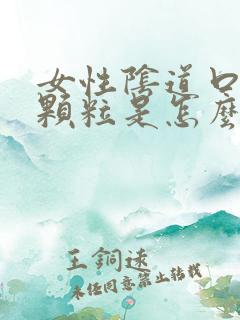 女性陰道口
顆粒是怎麼
王鋼速
未经同意禁止转载